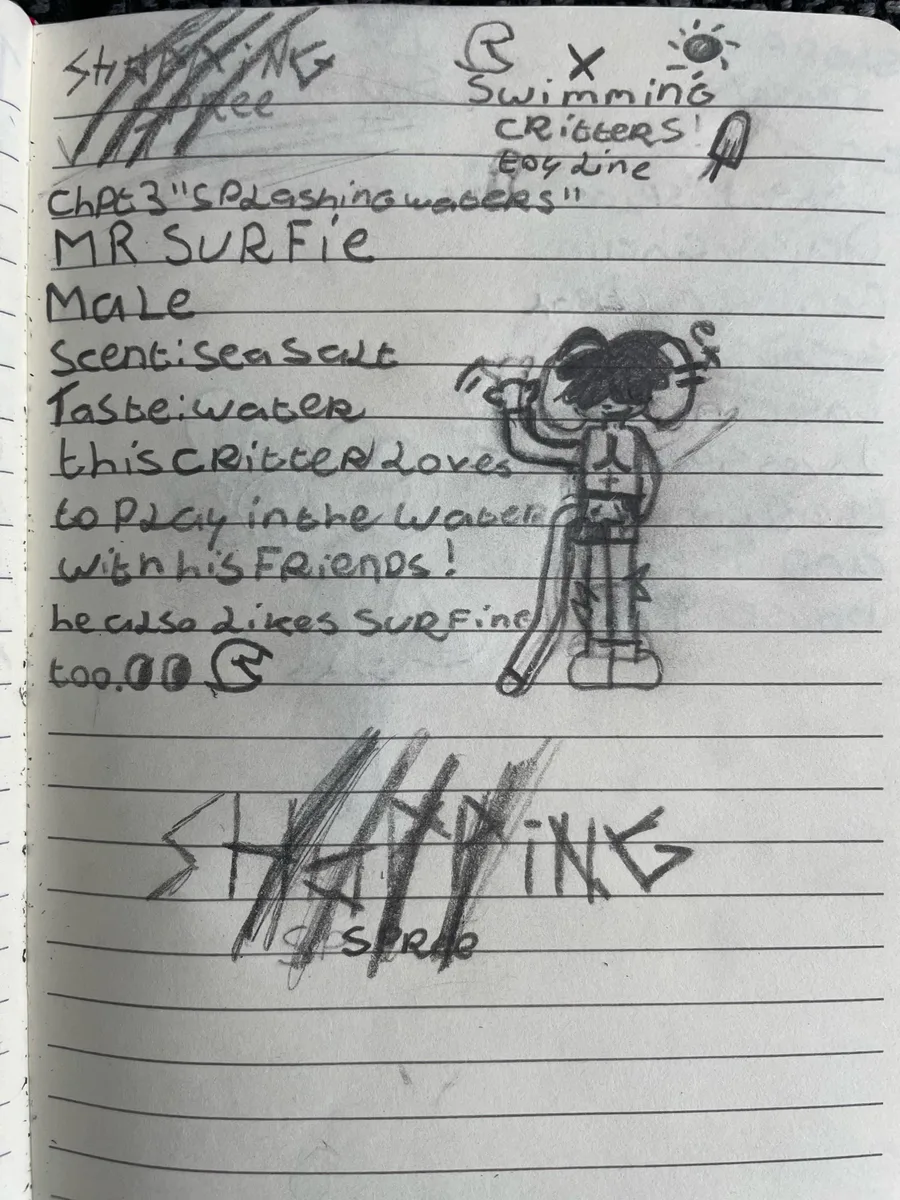 SHAPPING
X
Swimming
CRitteRS!
toy Line
Chpt3 "SPLashing waters"
MR SURFie
MaLe
Scent:sea Salt
Taste:water
this CRitteR Loves
to PLay in the Water
with his FRiends!
he also Likes SURFing
too.
SHAPPING
SPRee